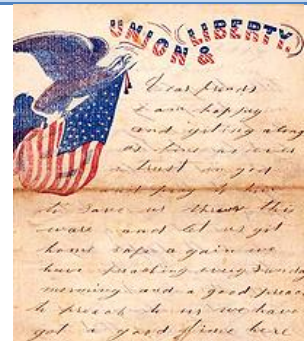 UNION & LIBERTY.
Dear friends
I am happy
and giting along
as fine as ever
I trust in god
and pray to him
to save us threw this
ware and let us git
home safe a gain we
have preaching every Sunday
morning and a good preac
to preach to us we have
got a good time here